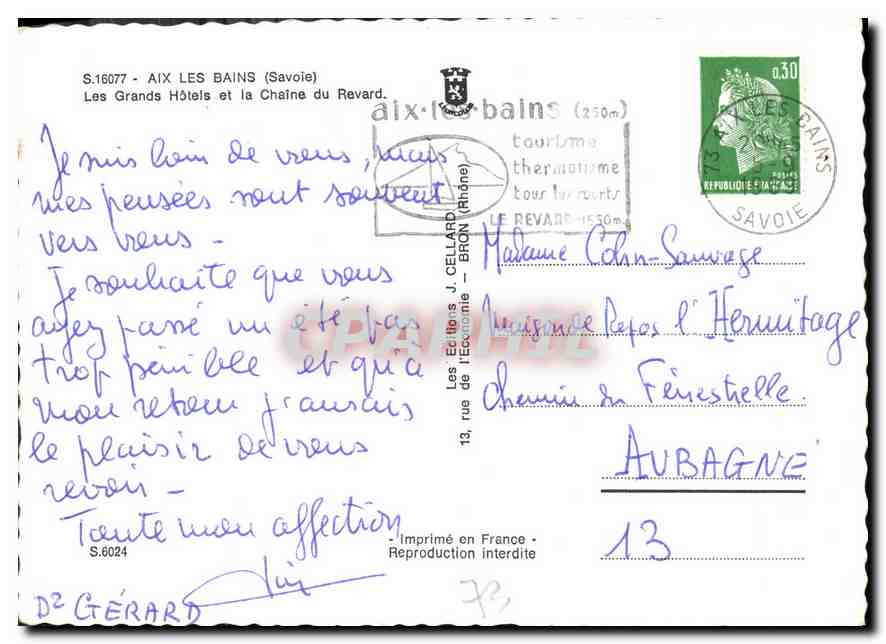 S.16077 - AIX LES BAINS (Savoie)
Les Grands Hôtels et la Chaîne du Revard.
Je suis loin de vous, mais
mes pensées sont souvent
vers vous -
Je souhaite que vous
ayez passé un été pas
trop pénible et qu'à
mon retour j'aurais
le plaisir de vous
revoir -
Toute mon affection
S.6024
Dr GÉRARD
LYONCOLOR
Les Editions J. CELLARD
13, rue de l'Economie - BRON (Rhône)
- Imprimé en France -
Reproduction interdite
73
aix-les-bains (250m)
tourisme
thermalisme
tous les sports
LE REVARD 1550m
0,30
POSTES
REPUBLIQUE FRANÇAISE
73 AIX LES BAINS
SAVOIE
Madame Cohn-Sauvage
Maison de Repos l'Hermitage
Chemin du Fénestrelle.
AUBAGNE
13
CPARAMA